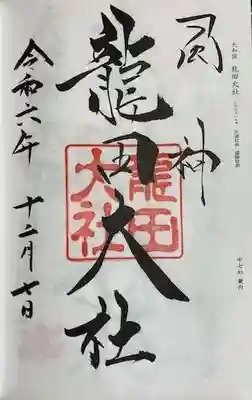 大和国 龍田大社
中七社
風神
龍田大社
龍田
大社
令和六年 十二月七日